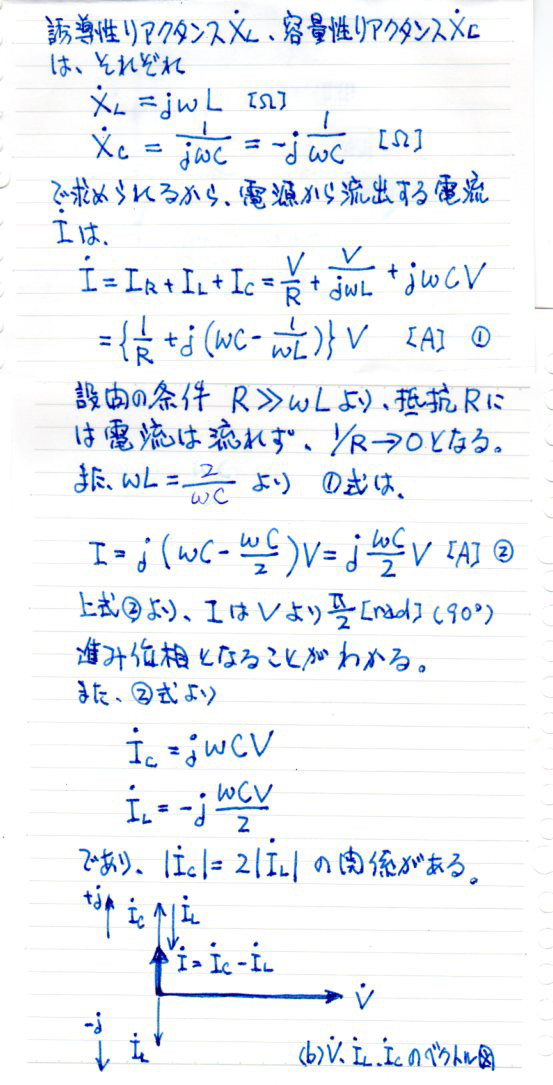 誘導性リアクタンスẊL、容量性リアクタンスẊC
は、それぞれ
ẊL = jωL [Ω]
ẊC = 1/jωC = -j 1/ωC [Ω]
で求められるから、電源から流出する電流
İは、
İ = IR + IL + IC = V/R + V/jωL + jωCV
= {1/R + j(ωC - 1/ωL)} V [A] ①
設問の条件 R≫ωLより、抵抗Rに
は電流は流れず、1/R→0となる。
また、ωL = 2/ωC より ①式は、
I = j(ωC - ωC/2)V = j ωC/2 V [A] ②
上式②より、IはVより π/2 [rad] (90°)
進み位相となることがわかる。
また、②式より
İC = jωCV
İL = -j ωCV/2
であり、|İC| = 2|İL| の関係がある。
+j İC İL
İ = İC - İL
V̇
-j İL
(b) V̇、İL、İCのベクトル図